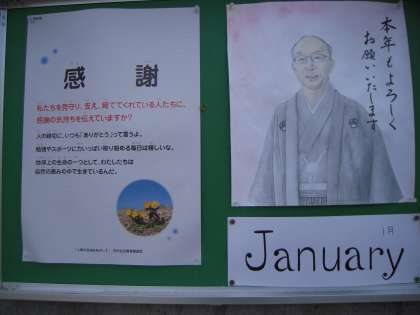 感謝
私たちを見守り、支え、育ててくれている人たちに、
感謝の気持ちを伝えていますか?
人の親切に、いつも「ありがとう」って言うよ。
勉強やスポーツに力いっぱい取り組める毎日は嬉しいな。
地球上の生命の一つとして、わたしたちは
自然の恵みの中で生きているんだ。
本年もよろしく
お願いいたします
1月
January